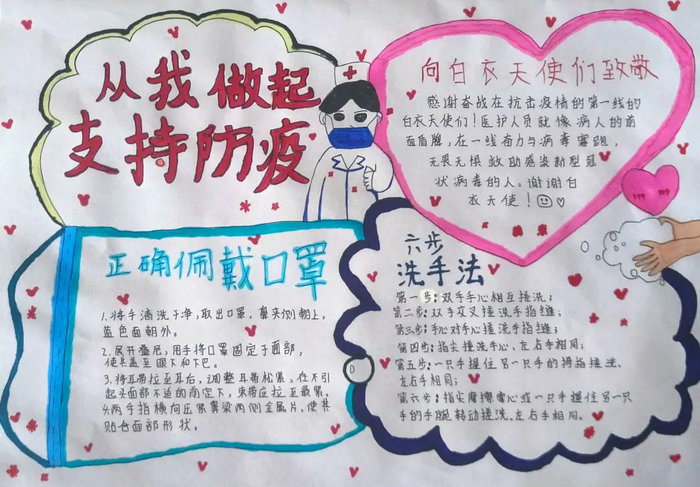 从我做起
支持防疫
向白衣天使们致敬
感谢奋战在抗击疫情的第一线的
白衣天使们！医护人员就像病人的前
面盾牌，在一线奋力与病毒赛跑，
无畏无惧救助感染新型冠
状病毒的人，谢谢白
衣天使！
正确佩戴口罩
1.将手清洗干净，取出口罩，鼻夹侧朝上，
蓝色面朝外。
2.展开叠层，用手将口罩固定于面部，
使其盖至眼下和下巴。
3.将耳带拉至耳后，调整耳带松紧，在不引
起头面部不适的前定下，束带应拉至最紧。
4.两手指横向压紧鼻梁两侧金属片，使其
贴合面部形状。
六步
洗手法
第一步：双手手心相互搓洗；
第二步：双手交叉搓洗手指缝；
第三步：手心对手心搓洗手指缝；
第四步：指尖搓洗手心，左右手相同；
第五步：一只手握住另一只手的拇指搓洗，
左右手相同；
第六步：指尖摩擦掌心或一只手握住另一只
手的手腕转动搓洗，左右手相同。